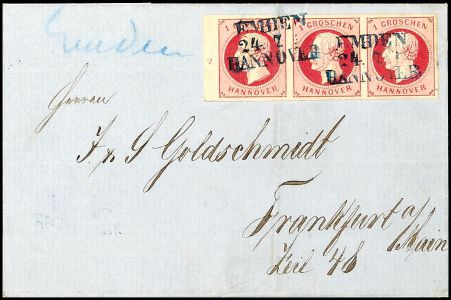 1 GROSCHEN 1 GROSCHEN 1 GROSCHEN
HANNOVER HANNOVER HANNOVER
EMDEN
24. 7
HANNOVER
EMDEN
24. 7
HANNOVER
Emden
Herren
J. & S Goldschmidt
Frankfurt a/
Main
Zeil 48